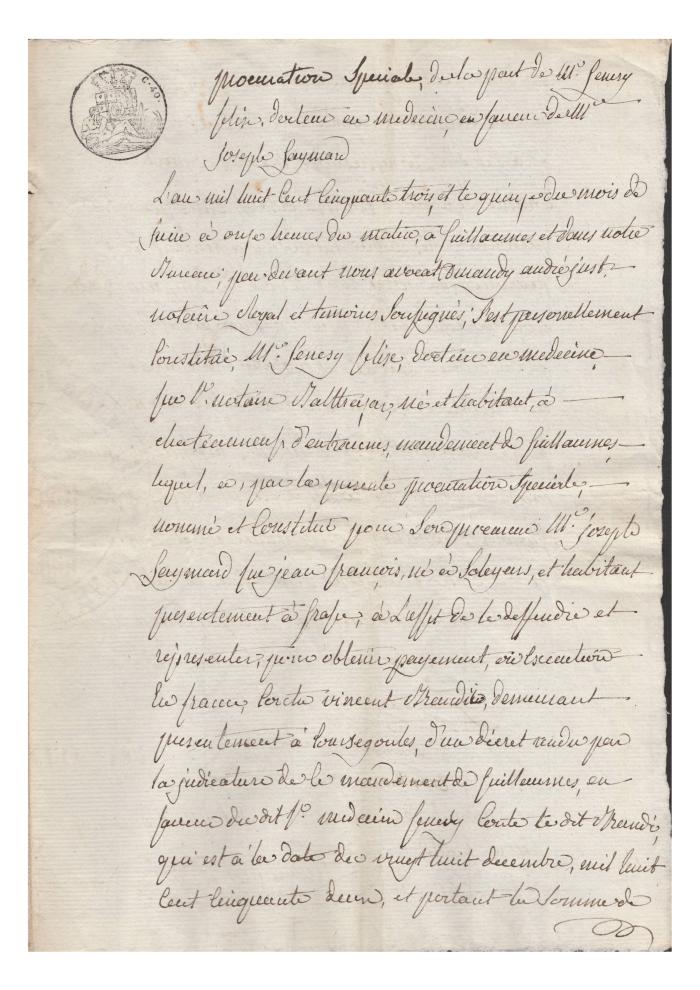 C. 40.
procuration Speciale, de la part de Mr. Genesy
felix, docteur en medecine, en faveur de Mr
Joseph Gaymard
L'an mil huit Cent Cinquante trois, et le quinze du mois de
juin à onze heures du matin, à Guillaumes et dans notre
Bureau, par devant nous avocat Durandy andré just,
notaire Royal et temoins Soussignés, S'est personellement
Constitué, Mr. Genesy felix, docteur en medecine,
feu Sr. notaire Balthazar, né et habitant, à
chateauneuf d'entraunes, mandement de Guillaumes,
lequel, a, par la presente procuration Speciale,
nommé et Constitué pour Son procureur Mr. Joseph
Gaymard feu jean françois, né à Soleyens, et habitant
presentement à grasse, à L'effet de le deffendre et
representer, pour obtenir payement, ou Execution
En france, Contre vincent Draudi, demeurant
presentement à Coursegoules, d'un décret rendu par
la judicature de le mandement de Guillaumes, en
faveur du dit Sr. medecin Genesy Contre le dit Draudi,
qui est à la date du vingt huit decembre, mil huit
Cent Cinquante deux, et portant la Somme de